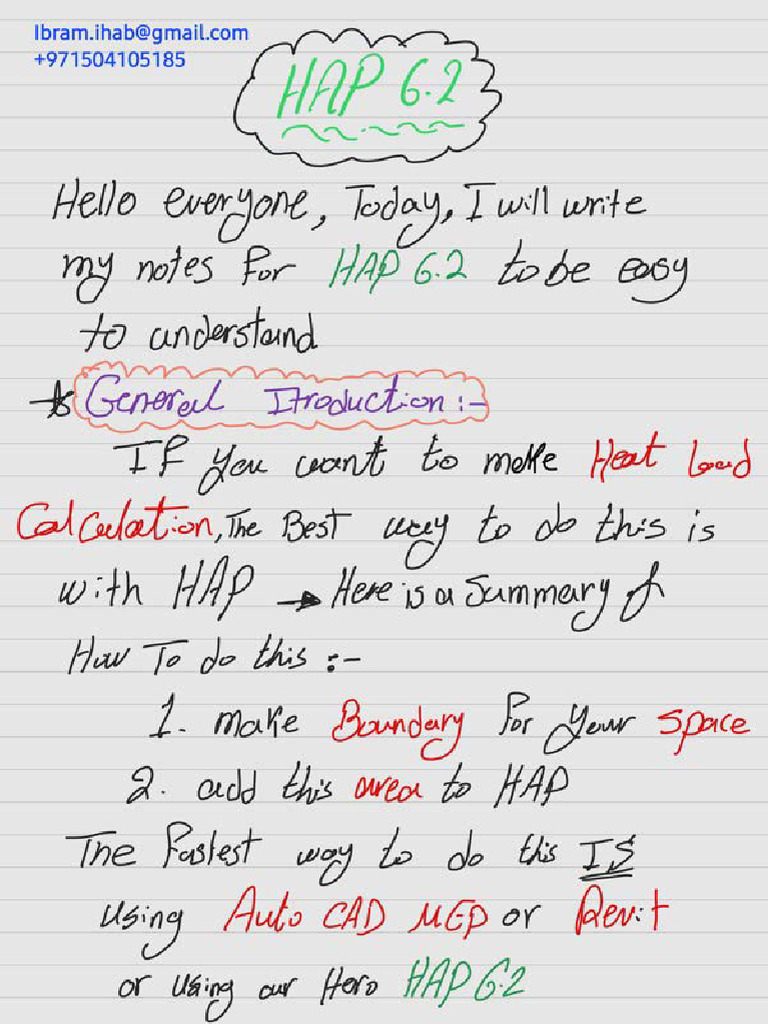 Ibram.ihab@gmail.com
+971504105185
HAP 6.2
Hello everyone, Today, I will write
my notes for HAP 6.2 to be easy
to understand
General Itroduction :-
If you want to make Heat load
Calculation, The Best way to do this is
with HAP → Here is a Summary of
How To do this :-
1. make Boundary for your space
2. add this area to HAP
The Fastest way to do this IS
using Auto CAD MEP or Revit
or using our Hero HAP 6.2